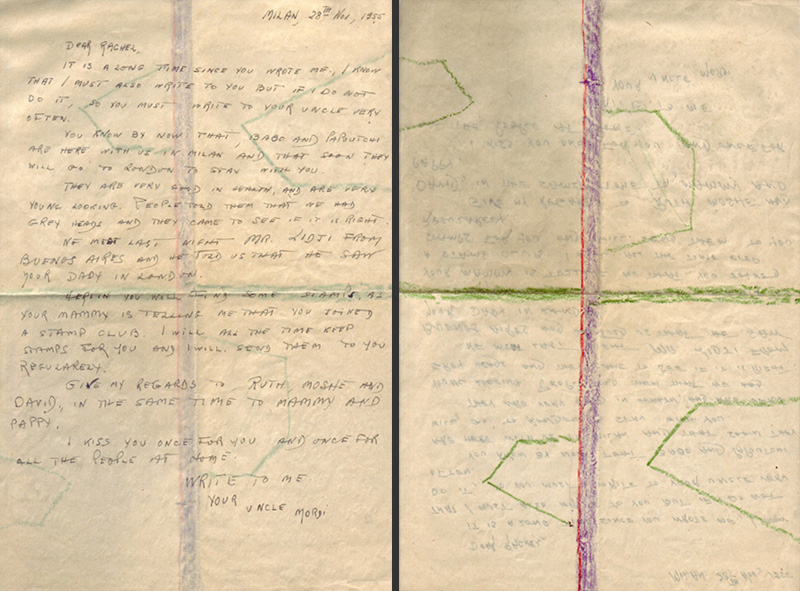 MILAN, 28TH NOV, 1955
DEAR RACHEL,
IT IS A LONG TIME SINCE YOU WROTE ME, I KNOW
THAT I MUST ALSO WRITE TO YOU BUT IF I DO NOT
DO IT, SO YOU MUST WRITE TO YOUR UNCLE VERY
OFTEN.
YOU KNOW BY NOW THAT, BABO AND PAPOUTCHI
ARE HERE WITH US IN MILAN AND THAT SOON THEY
WILL GO TO LONDON TO STAY WITH YOU.
THEY ARE VERY GOOD IN HEALTH, AND ARE VERY
YOUNG LOOKING. PEOPLE TOLD THEM THAT WE HAD
GREY HEADS AND THEY CAME TO SEE IF IT IS RIGHT.
WE MEAT LAST NIGHT MR. LIDJI FROM
BUENOS AIRES AND HE TOLD US THAT HE SAW
YOUR DADY IN LONDON.
HEREIN YOU WILL FIND SOME STAMPS, AS
YOUR MAMMY IS TELLING ME THAT YOU JOINED
A STAMP CLUB. I WILL ALL THE TIME KEEP
STAMPS FOR YOU AND I WILL SEND THEM TO YOU
REGULARELY.
GIVE MY REGARDS TO RUTH, MOSHE AND
DAVID, IN THE SAME TIME TO MAMMY AND
PAPPY.
I KISS YOU ONCE FOR YOU AND ONCE FOR
ALL THE PEOPLE AT HOME.
WRITE TO ME
YOUR UNCLE MORDI